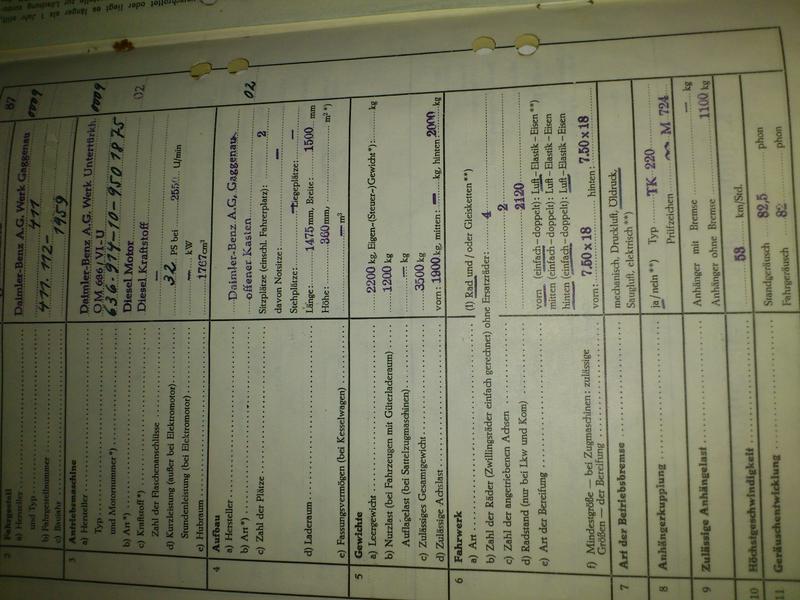 2 Fahrgestell
a) Hersteller Daimler-Benz A.G. Werk Gaggenau 0009
und Typ 411
b) Fahrgestellnummer 411. 112-
c) Baujahr 1959
3 Antriebsmaschine
a) Hersteller Daimler-Benz A.G. Werk Untertürkh. 0009
Typ OM 636 VI-U
und Motornummer*) 636-914-10-950 1875
b) Art*) Diesel Motor
c) Kraftstoff*) Diesel Kraftstoff 02
Zahl der Flaschenanschlüsse —
d) Kurzleistung (außer bei Elektromotor) 32 PS bei 2550 U/min
Stundenleistung (bei Elektromotor) — kW
e) Hubraum 1767 cm³
4 Aufbau
a) Hersteller Daimler-Benz A.G, Gaggenau
b) Art*) offener Kasten 02
c) Zahl der Plätze Sitzplätze (einschl. Fahrerplatz): 2
davon Notsitze: —
Stehplätze: — Liegeplätze: —
d) Laderaum Länge: 1475 mm, Breite: 1500 mm
Höhe: 360 mm, m²*)
e) Fassungsvermögen (bei Kesselwagen) — m³
5 Gewichte
a) Leergewicht 2200 kg, Eigen-(Steuer-)Gewicht*): kg
b) Nutzlast (bei Fahrzeugen mit Güterladeraum) 1200 kg
Auflagelast (bei Sattelzugmaschinen) — kg
c) Zulässiges Gesamtgewicht 3500 kg
d) Zulässige Achslast vorn: 1900 kg, mitten: — kg, hinten: 2000 kg
6 Fahrwerk
a) Art (1) Rad und / oder Gleisketten **)
b) Zahl der Räder (Zwillingsräder einfach gerechnet) ohne Ersatzräder: 4
c) Zahl der angetriebenen Achsen 2
d) Radstand (nur bei Lkw und Kom) 2120
e) Art der Bereifung vorn (einfach - doppelt): Luft - Elastik - Eisen **)
mitten (einfach - doppelt): Luft - Elastik - Eisen
hinten (einfach - doppelt): Luft - Elastik - Eisen
f) Mindestgröße — bei Zugmaschinen: zulässige
Größen — der Bereifung vorn: 7,50x18 hinten: 7,50x18
7 Art der Betriebsbremse mechanisch, Druckluft, Öldruck,
Saugluft, elektrisch **)
8 Anhängerkupplung ja / nein **) Typ TK 220
Prüfzeichen M 724
9 Zulässige Anhängelast Anhänger mit Bremse — kg
Anhänger ohne Bremse 1100 kg
10 Höchstgeschwindigkeit 53 km/Std.
11 Geräuschentwicklung Standgeräusch 82,5 phon
Fahrgeräusch 82 phon